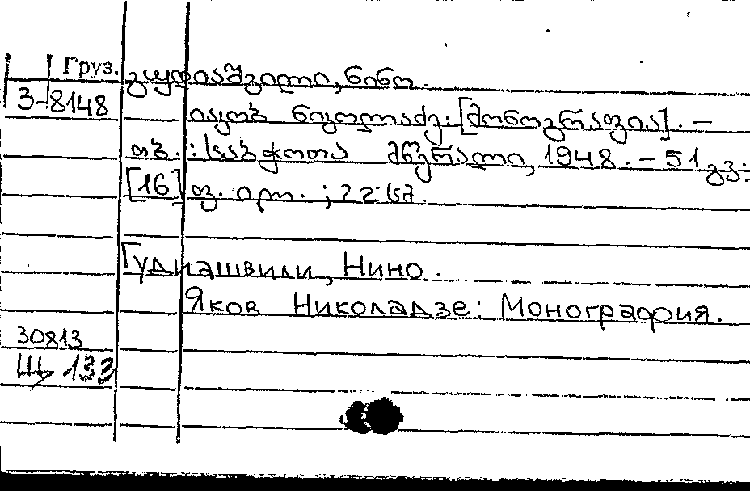 Груз. გუდიაშვილი, ნინო.
3-8148
იაკობ ნიკოლაძე. [მონოგრაფია]. –
თბ. : საბჭოთა მწერალი, 1948. – 51 გვ.
[16] ფ. ილ. ; 22 სმ.
Гудиашвили, Нино.
Яков Николадзе: Монография.
30813
Щ 133